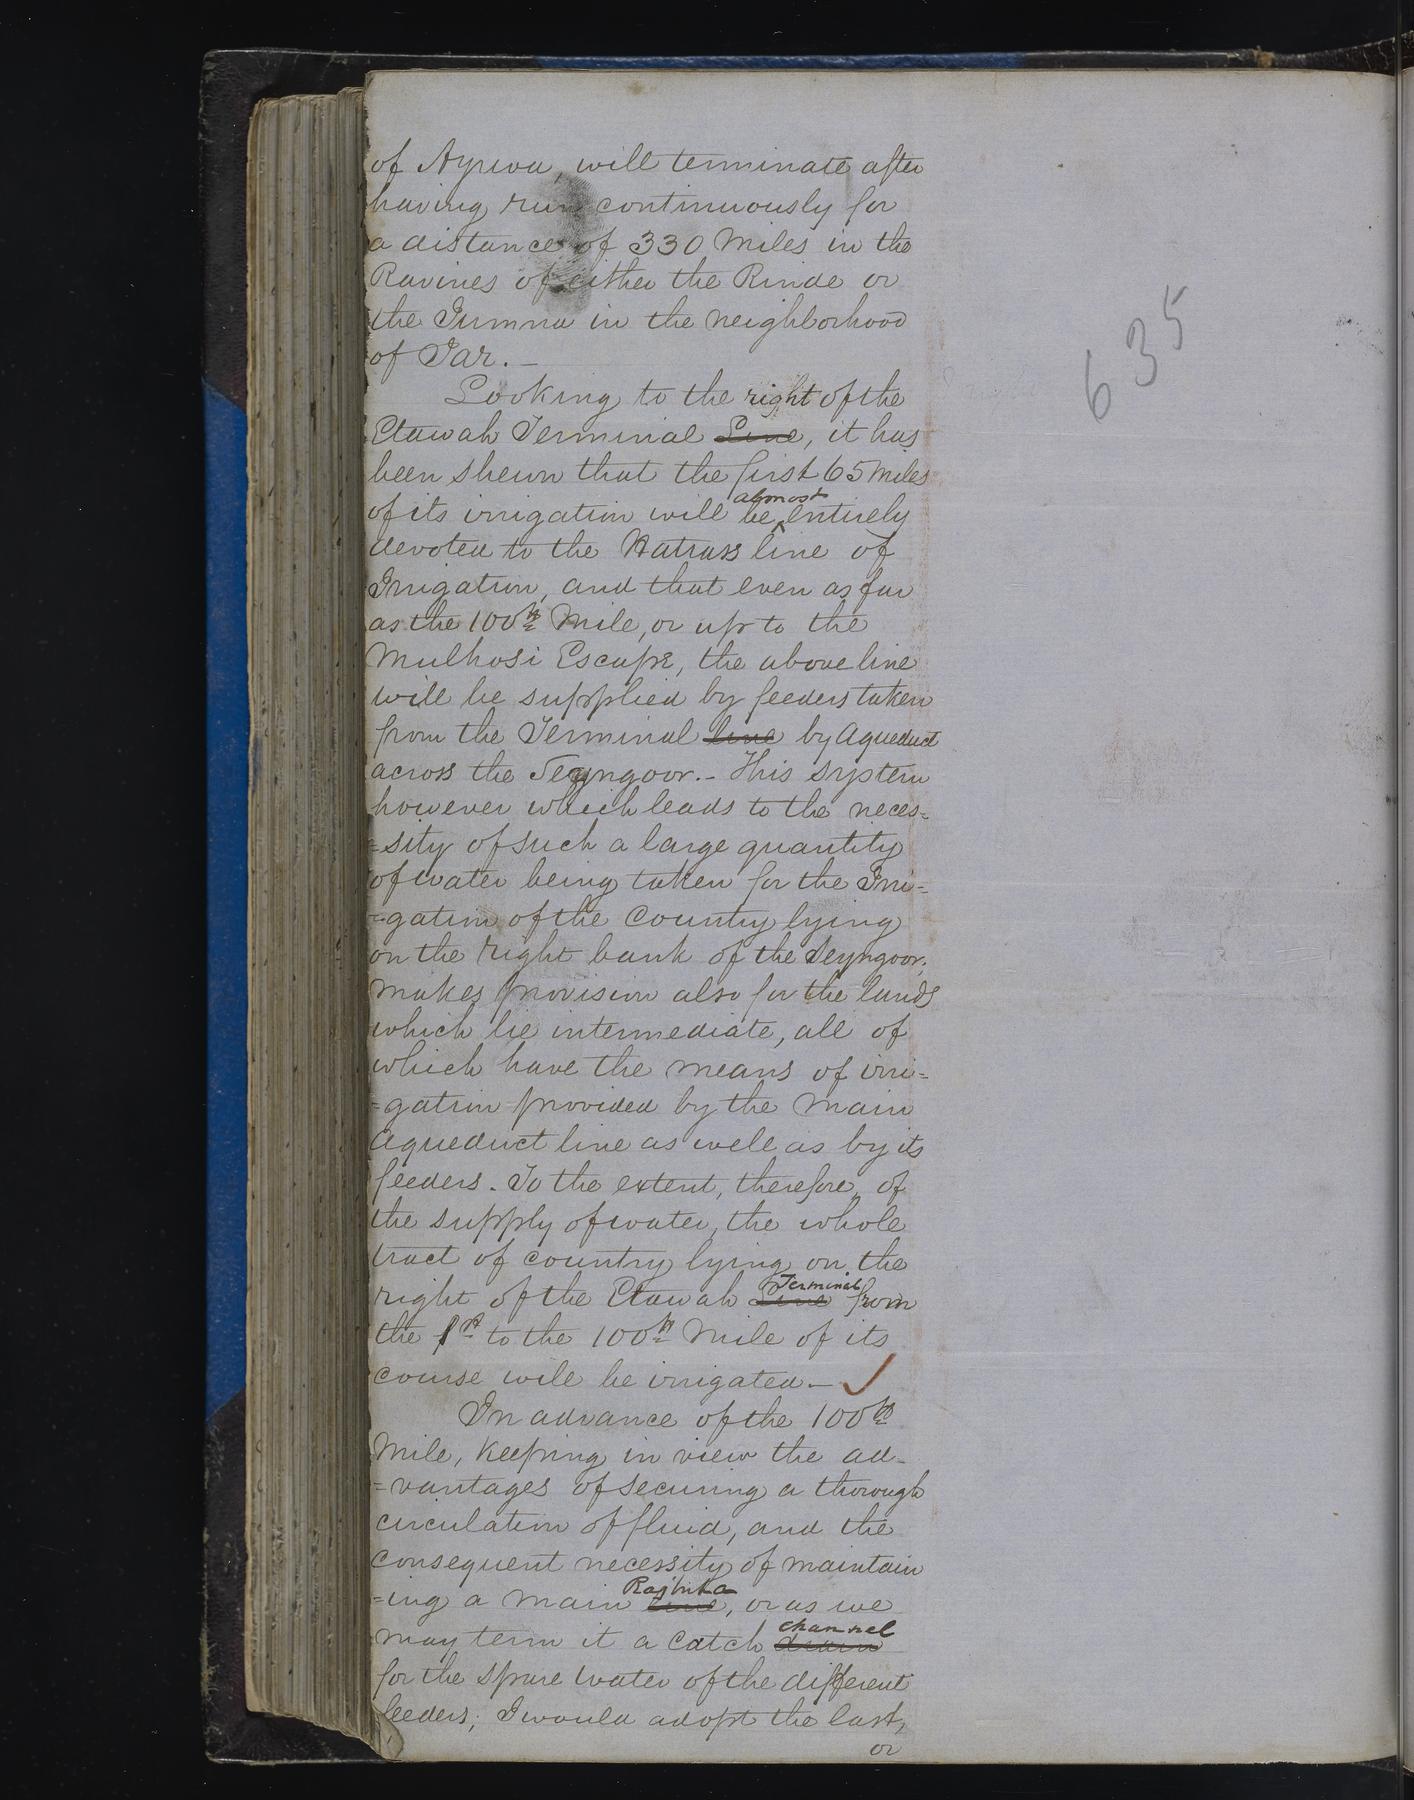 of Ayrwa, will terminate after
having run continuously for
a distance of 330 Miles in the
Ravines of either the Rinde or
the Jumna in the neighborhood
of Jar.—
Looking to the right of the
Etawah Terminal Line, it has
been shewn that the first 65 miles
almost
of its irrigation will be entirely
devoted to the line of
Irrigation, and that even as far
as the 100th Mile, or up to the
Mulhosi Escape, the above line
will be supplied by feeders taken
from the Terminal line by Aqueduct
across the Seyngoor.- This system
however which leads to the neces=
=sity of such a large quantity
of water being taken for the Irri=
=gation of the Country lying
on the right bank of the Seyngoor,
makes provision also for the lands
which lie intermediate, all of
which have the means of irri=
=gation provided by the Main
Aqueduct line as well as by its
feeders. To the extent, therefore, of
the supply of water, the whole
tract of country lying on the
Terminal
right of the Etawah Line from
the 1st to the 100th Mile of its
course will be irrigated.—
In advance of the 100th
Mile, keeping in view the ad-
=vantages of securing a thorough
circulation of fluid, and the
consequent necessity of maintain
Rajbuha
=ing a main Line, or as we
channel
may term it a catch drain
for the spare water of the different
feeders; I would adopt the last,
or
635